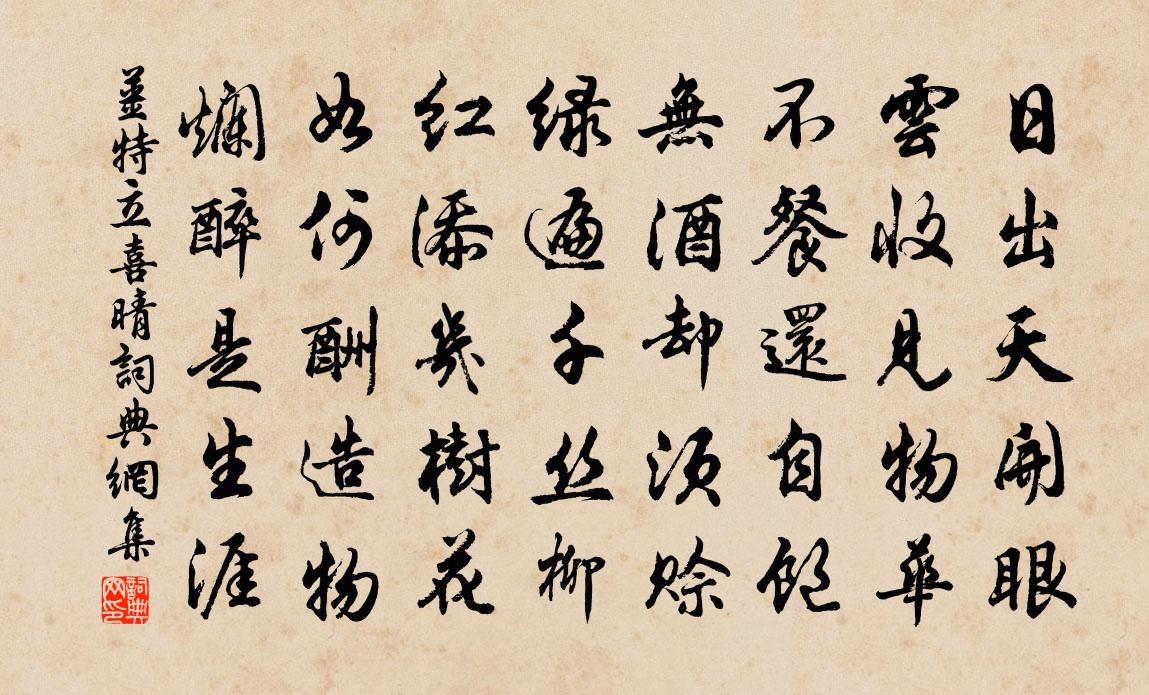 日出天開眼
雲收見物華
不餐還自飽
無酒却須賒
緑遍千丝柳
紅添幾樹花
如何酬造物
爛醉是生涯
姜特立喜晴詞典網集
詞典網印